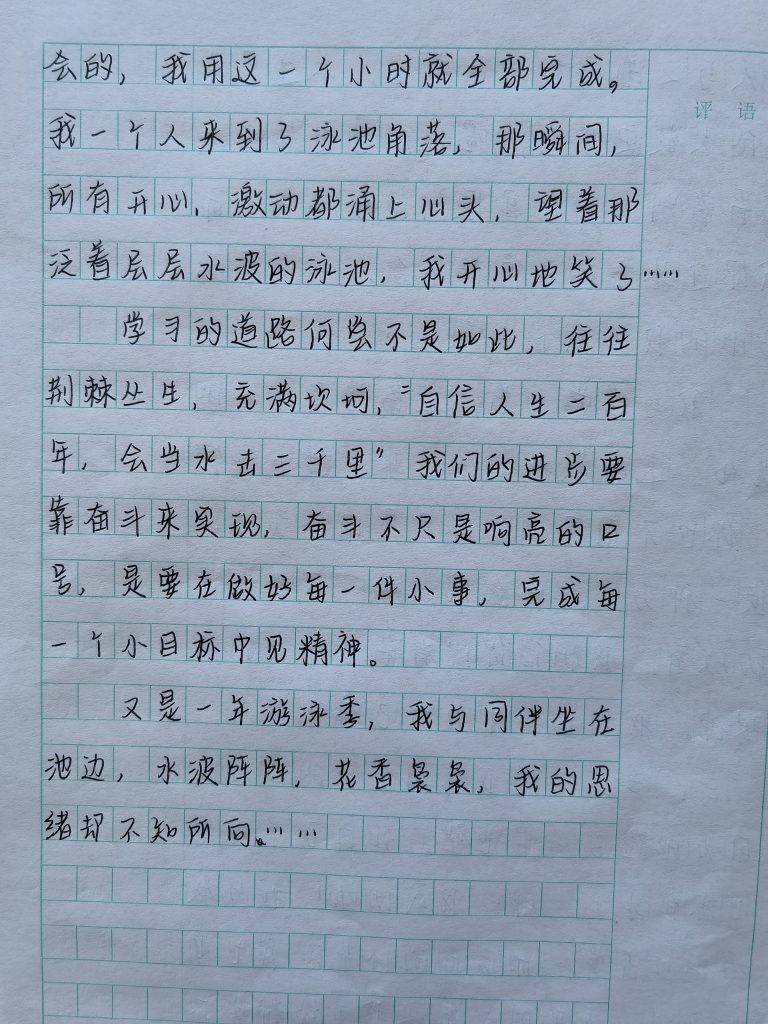 会的，我用这一个小时就全部完成。
评 语
我一个人来到了泳池角落，那瞬间，
所有开心、激动都涌上心头，望着那
泛着层层水波的泳池，我开心地笑了……
学习的道路何尝不是如此，往往
荆棘丛生，充满坎坷，“自信人生二百
年，会当水击三千里”我们的进步要
靠奋斗来实现，奋斗不只是响亮的口
号，是要在做好每一件小事，完成每
一个小目标中见精神。
又是一年游泳季，我与同伴坐在
池边，水波阵阵，花香袅袅，我的思
绪却不知所向。……